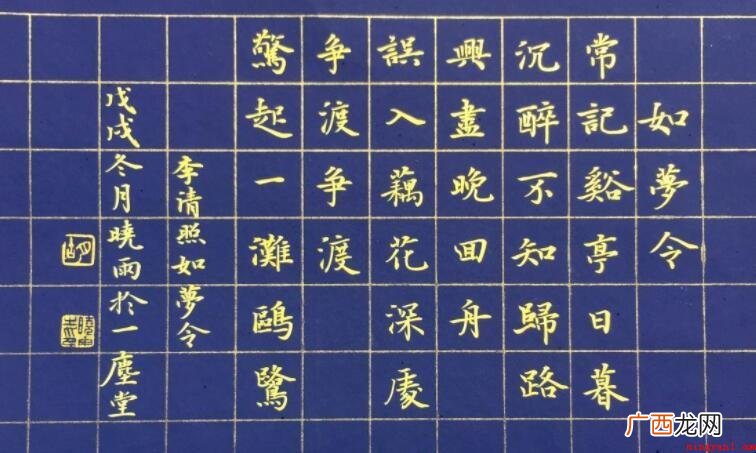 如夢令
常記谿亭日暮
沉醉不知歸路
興盡晚回舟
誤入藕花深處
争渡争渡
驚起一灘鷗鷺
李清照如夢令
戊戌冬月曉雨於一塵堂
广西龙网